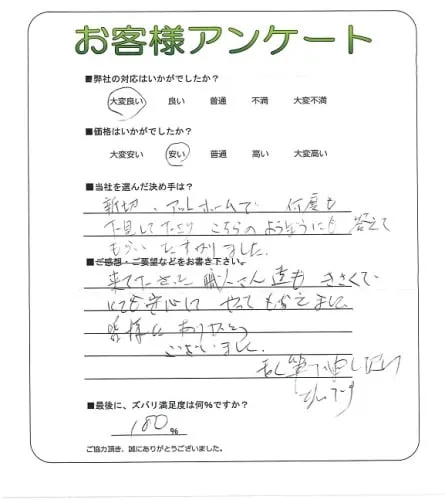 お客様アンケート
■弊社の対応はいかがでしたか?
大変良い 良い 普通 不満 大変不満
■価格はいかがでしたか?
大変安い 安い 普通 高い 大変高い
■当社を選んだ決め手は?
新切、アットホームで 何度も
下見して下たり こちらのようぼうにも 答えて
もらい たすかりました。
■ご感想・ご要望などをお書き下さい。
来て下さった 職人さん達も きさくで
とても安心して やってもらえました。
皆様に ありがとう
ございました。
乱筆で申し訳ない
です
■最後に、ズバリ満足度は何%ですか?
100%
ご協力頂き、誠にありがとうございました。